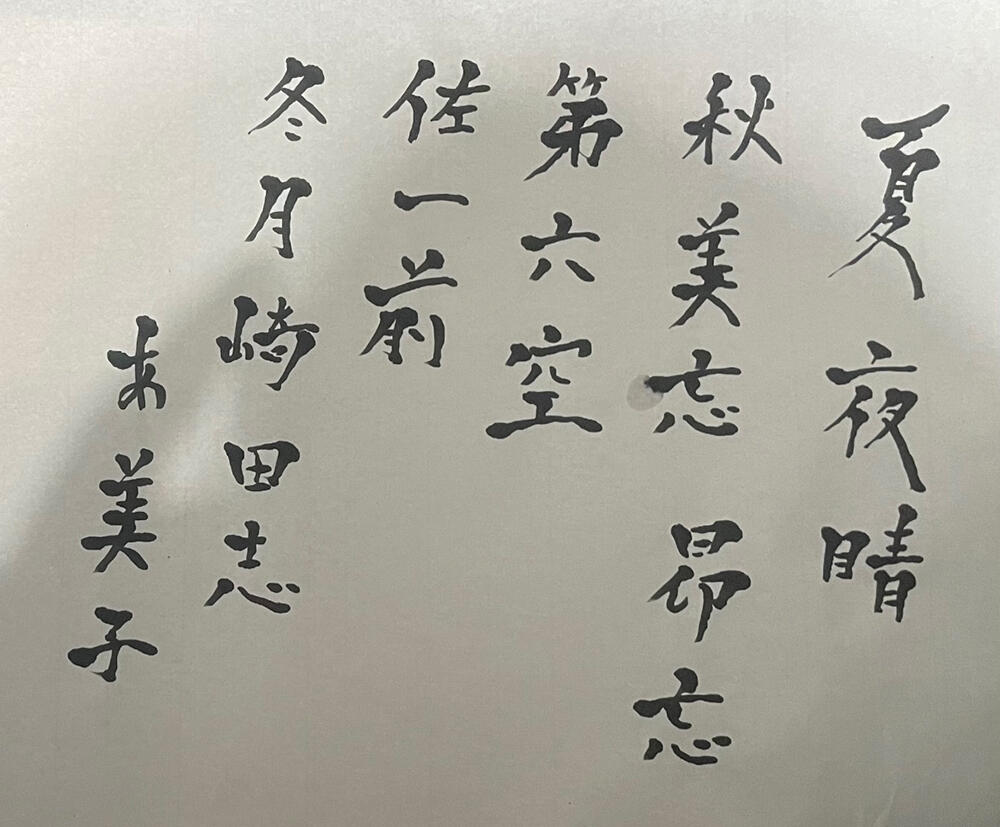 夏夜晴
秋美忘昴忘
第六空
佐一前
冬月崎田志
未美子